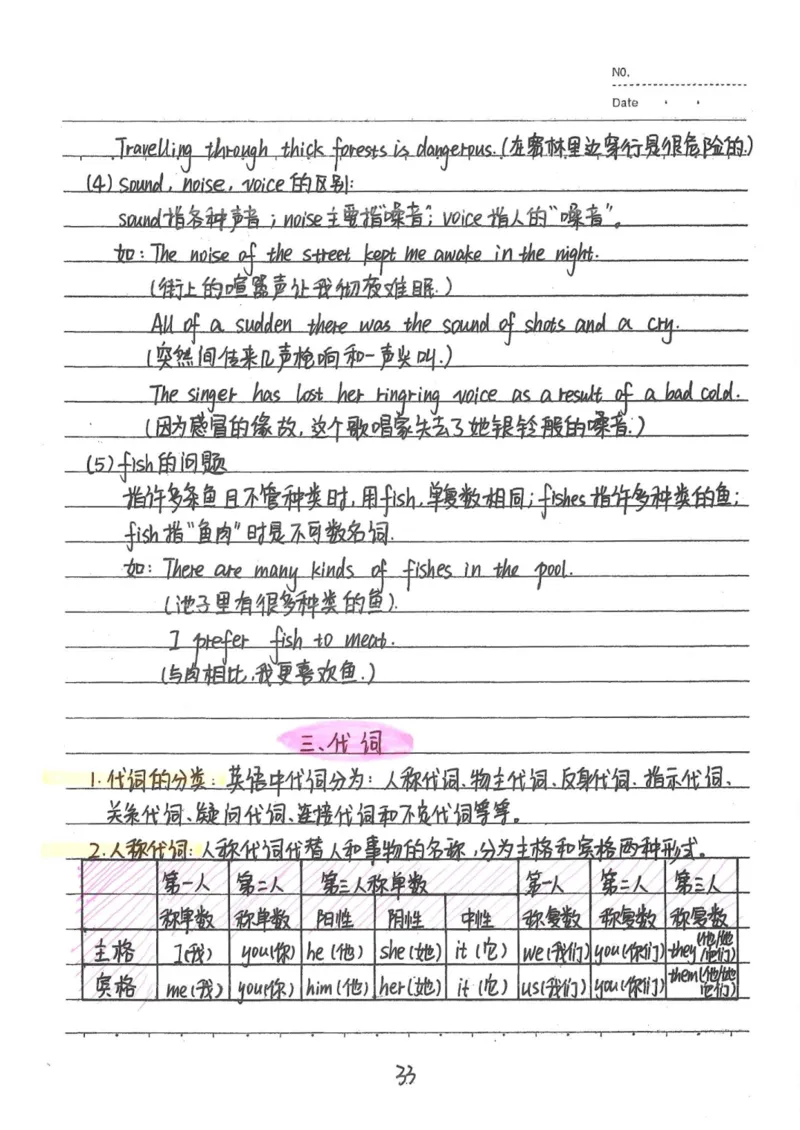 NO.
Date
Travelling through thick forests is dangerous.(在密林里边穿行是很危险的.)
(4) sound, noise, voice的区别:
sound指各种声音;noise主要指"噪音";voice指人的"嗓音"。
如:The noise of the street kept me awake in the night.
(街上的喧嚣声让我彻夜难眠.)
All of a sudden there was the sound of shots and a cry.
(突然间传来几声枪响和一声尖叫.)
The singer has lost her ringring voice as a result of a bad cold.
(因为感冒的缘故,这个歌唱家失去了她银铃般的嗓音.)
(5) fish的问题
指许多条鱼且不管种类时,用fish,单复数相同;fishes指许多种类的鱼;
fish指"鱼肉"时是不可数名词.
如:There are many kinds of fishes in the pool.
(池子里有很多种类的鱼).
I prefer fish to meat.
(与肉相比,我更喜欢鱼.)
三、代词
1.代词的分类:英语中代词分为:人称代词、物主代词、反身代词、指示代词、
关系代词、疑问代词、连接代词和不定代词等等。
2.人称代词:人称代词代替人和事物的名称,分为主格和宾格两种形式。
第一人 第二人 第三人称单数 第一人 第二人 第三人
称单数 称单数 阳性 阴性 中性 称复数 称复数 称复数
主格 I(我) you(你) he(他) she(她) it(它) we(我们) you(你们) they(他/她/它们)
宾格 me(我) you(你) him(他) her(她) it(它) us(我们) you(你们) them(他/她/它们)
33